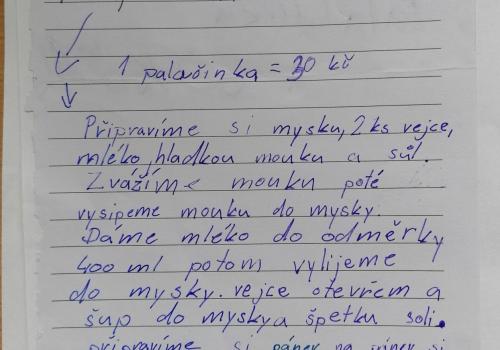 1 palačinka = 30 kč
Připravíme si mysku, 2 ks vejce,
mléko, hladkou mouku a sůl.
Zvážíme mouku poté
vysipeme mouku do mysky.
Dáme mléko do odměrky
400 ml potom vylijeme
do mysky. vejce otevřem a
šup do mysky a špetku soli.
připravíme si pánev na pánev si